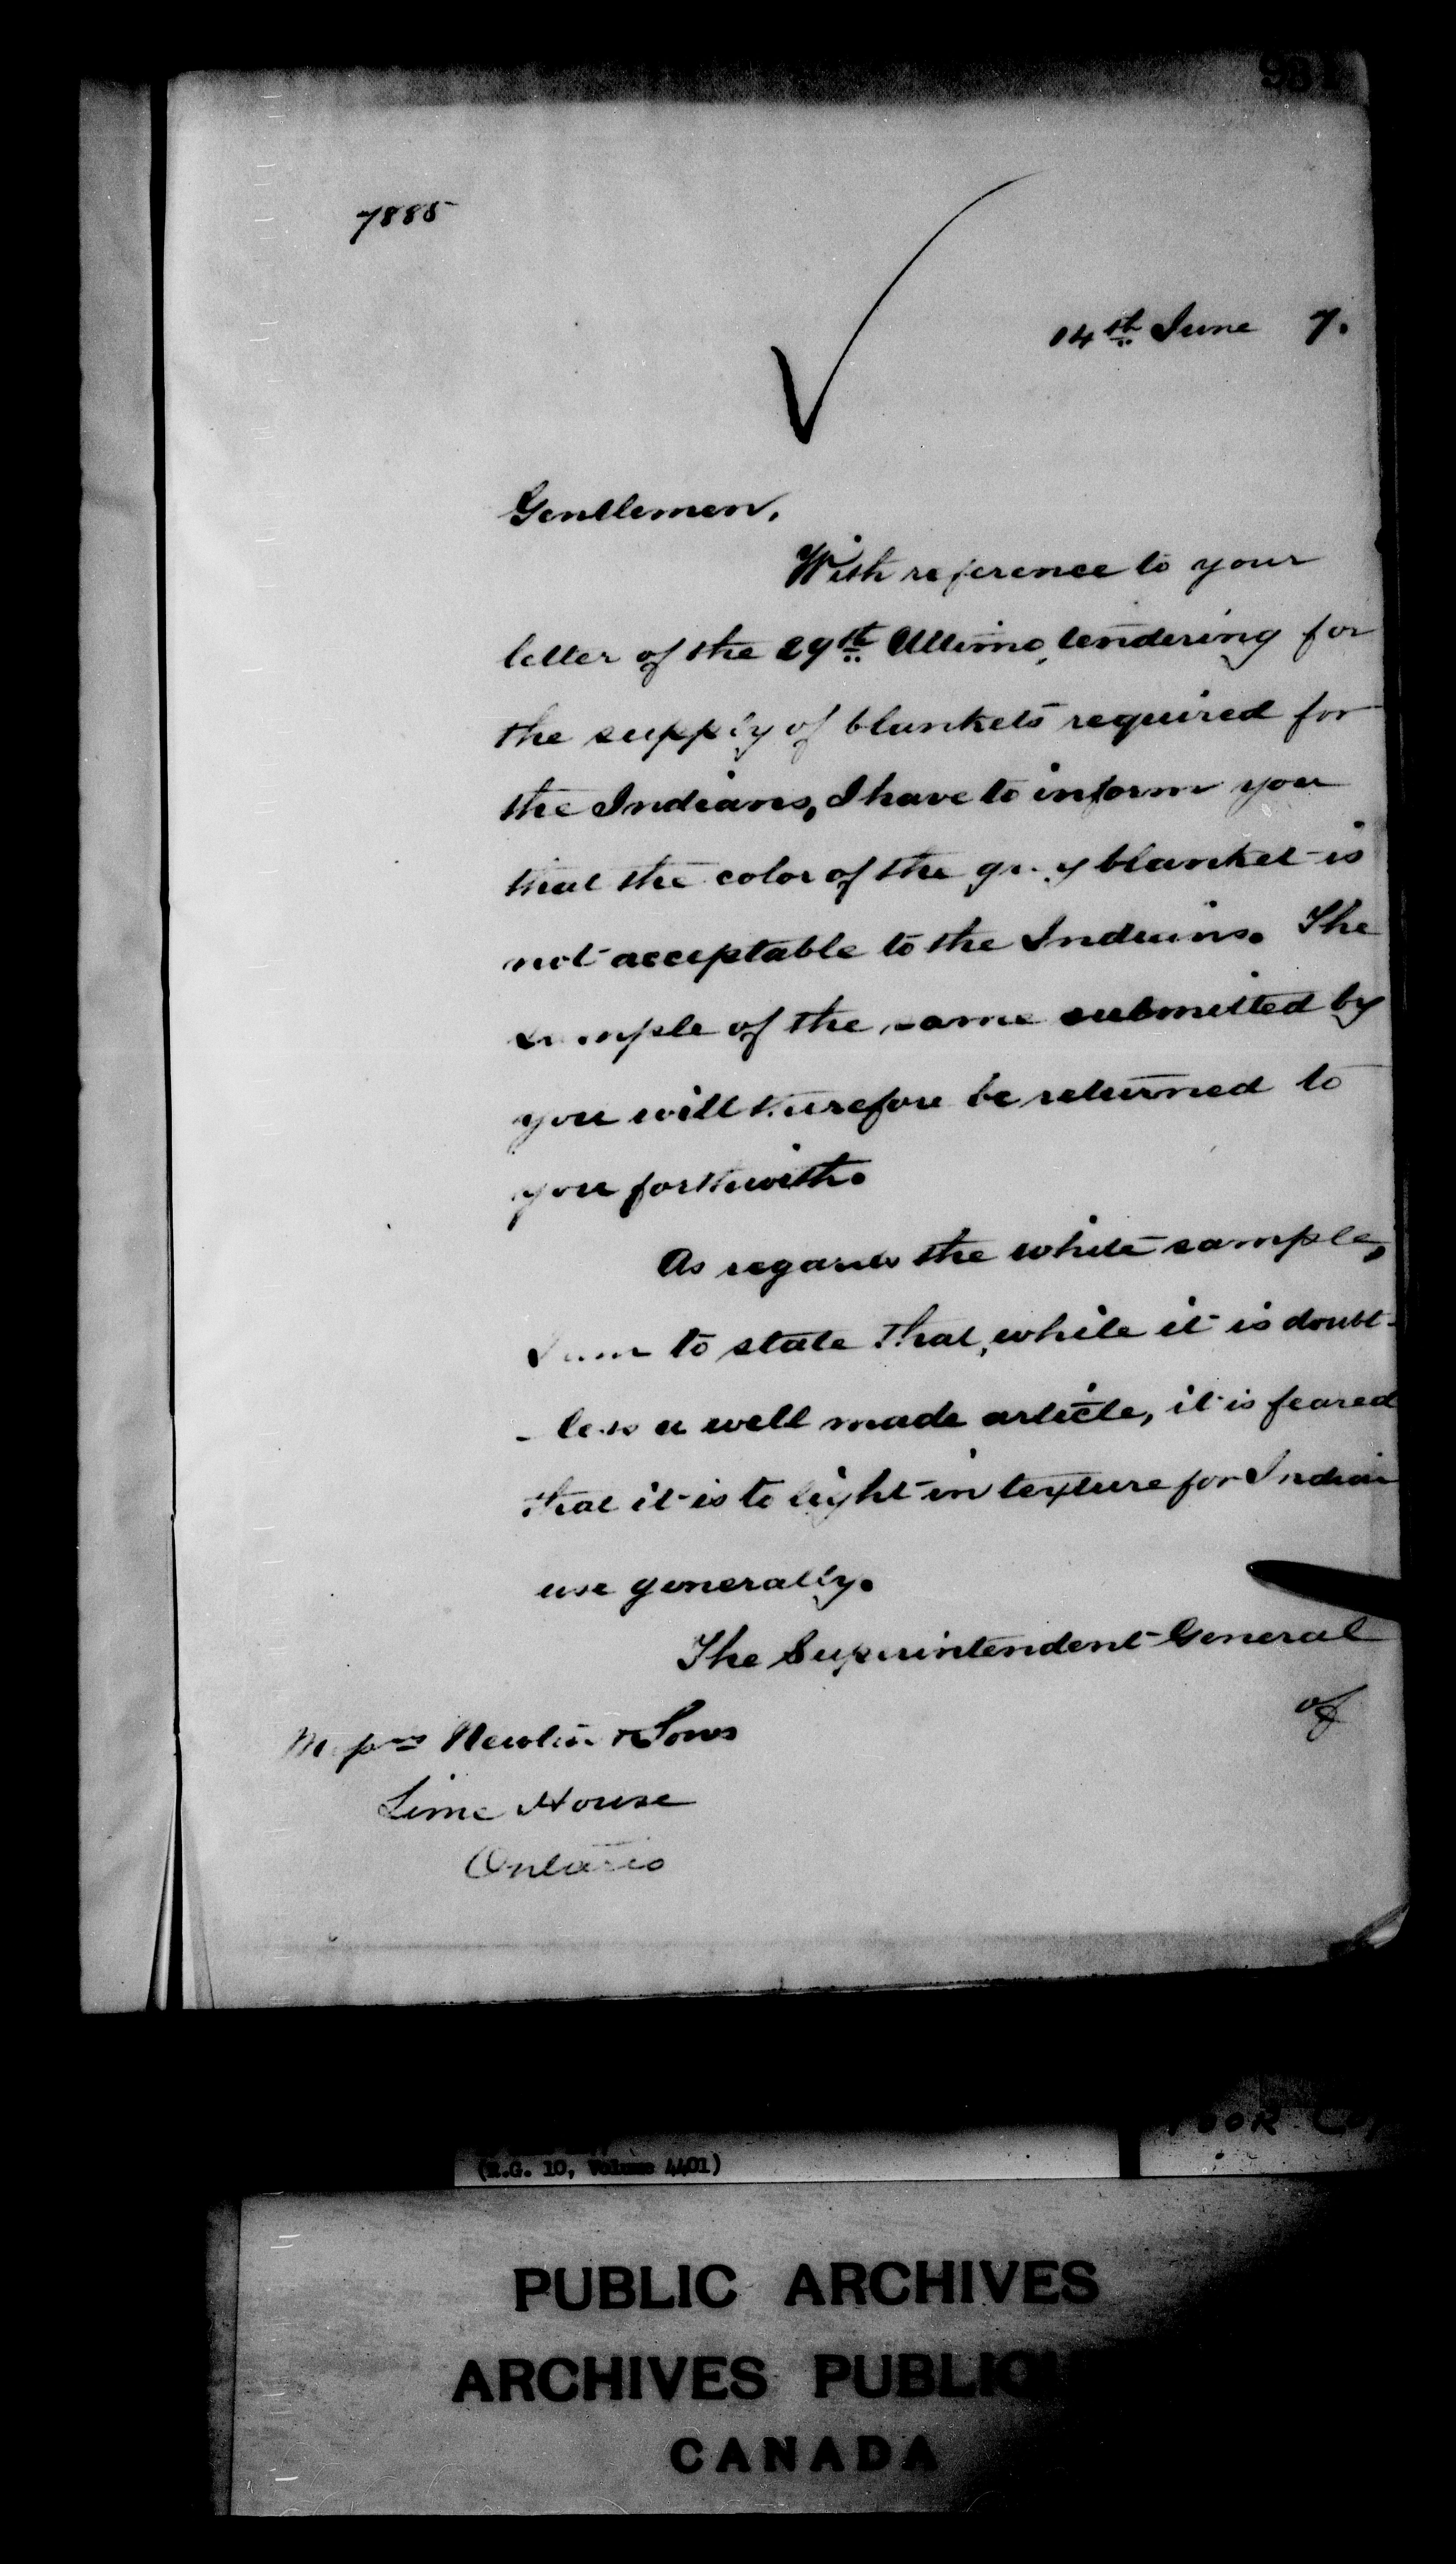 7885
14th June 7.
Gentlemen,
With reference to your
letter of the 29th Ultimo, tendering for
the supply of blankets required for
the Indians, I have to inform you
that the color of the grey blanket is
not acceptable to the Indians. The
sample of the same submitted by
you will therefore be returned to
you forthwith.
As regards the white sample,
I am to state that, while it is doubt-
-less a well made article, it is feared
that it is to light in texture for Indian
use generally.
The Superintendent General
of
Messrs & Sons
Lime House
Ontario
POOR COP
(R.G. 10, Volume 4401)
PUBLIC ARCHIVES
ARCHIVES PUBLIQU
CANADA